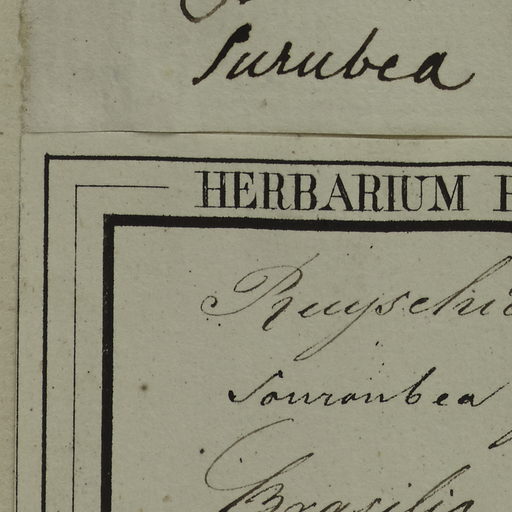 Surubea
HERBARIUM
Ruyschi
Souroubea
Brasilia